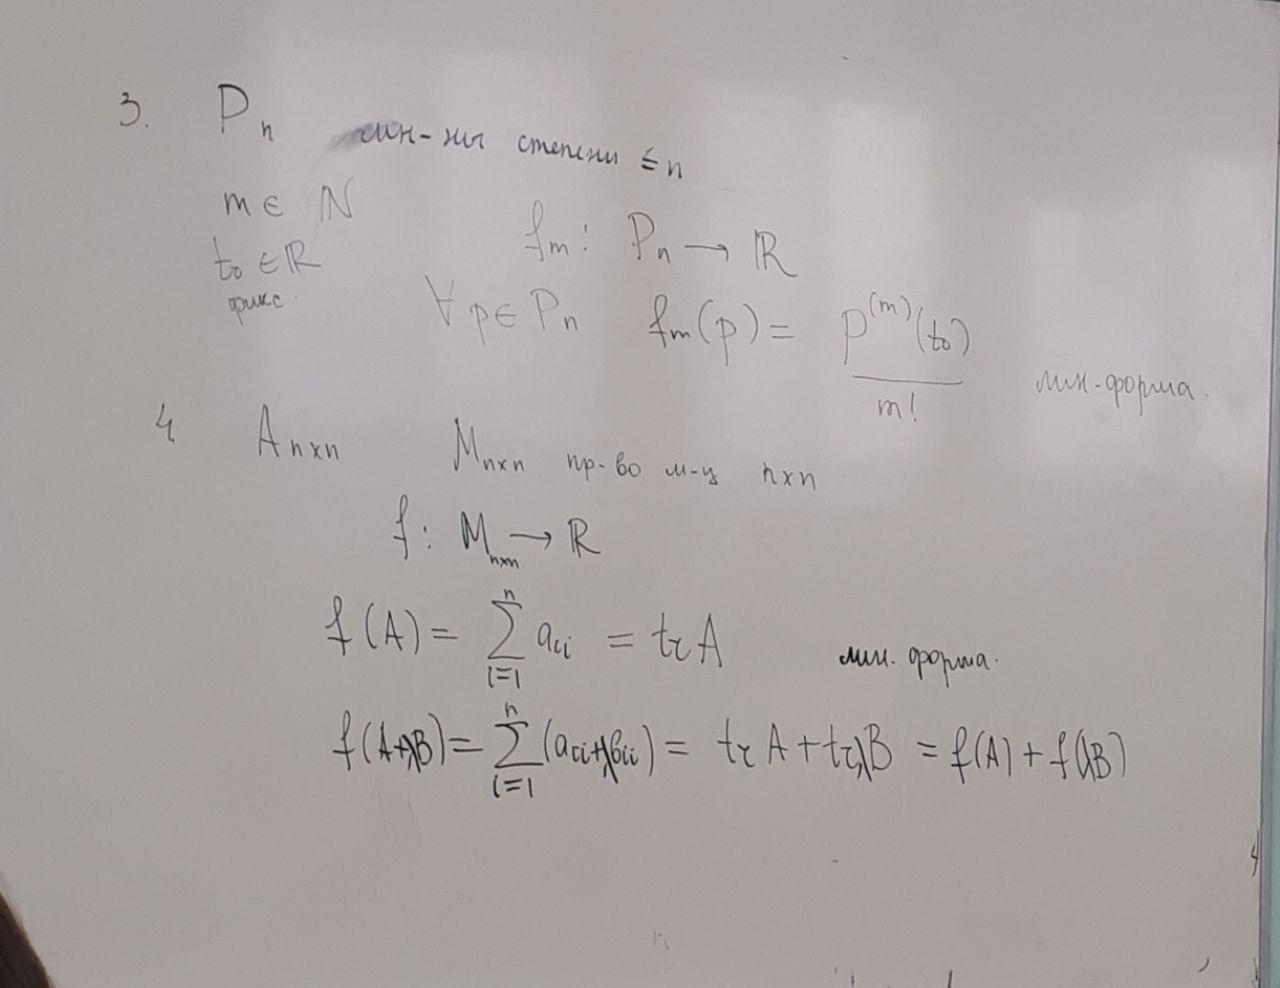 3. Pₙ мн-ны степени ≤ n
m ∈ ℕ
t₀ ∈ ℝ fₘ: Pₙ → ℝ
фикс. ∀ p ∈ Pₙ fₘ(p) = p⁽ᵐ⁾(t₀) / m! лин-форма.
4 Aₙₓₙ Mₙₓₙ пр-во м-ц n×n
f: Mₙₓₙ → ℝ
f(A) = ∑ᵢ₌₁ⁿ aᵢᵢ = tr A лин. форма.
f(A+λB) = ∑ᵢ₌₁ⁿ (aᵢᵢ+λbᵢᵢ) = tr A + tr λB = f(A) + f(λB)